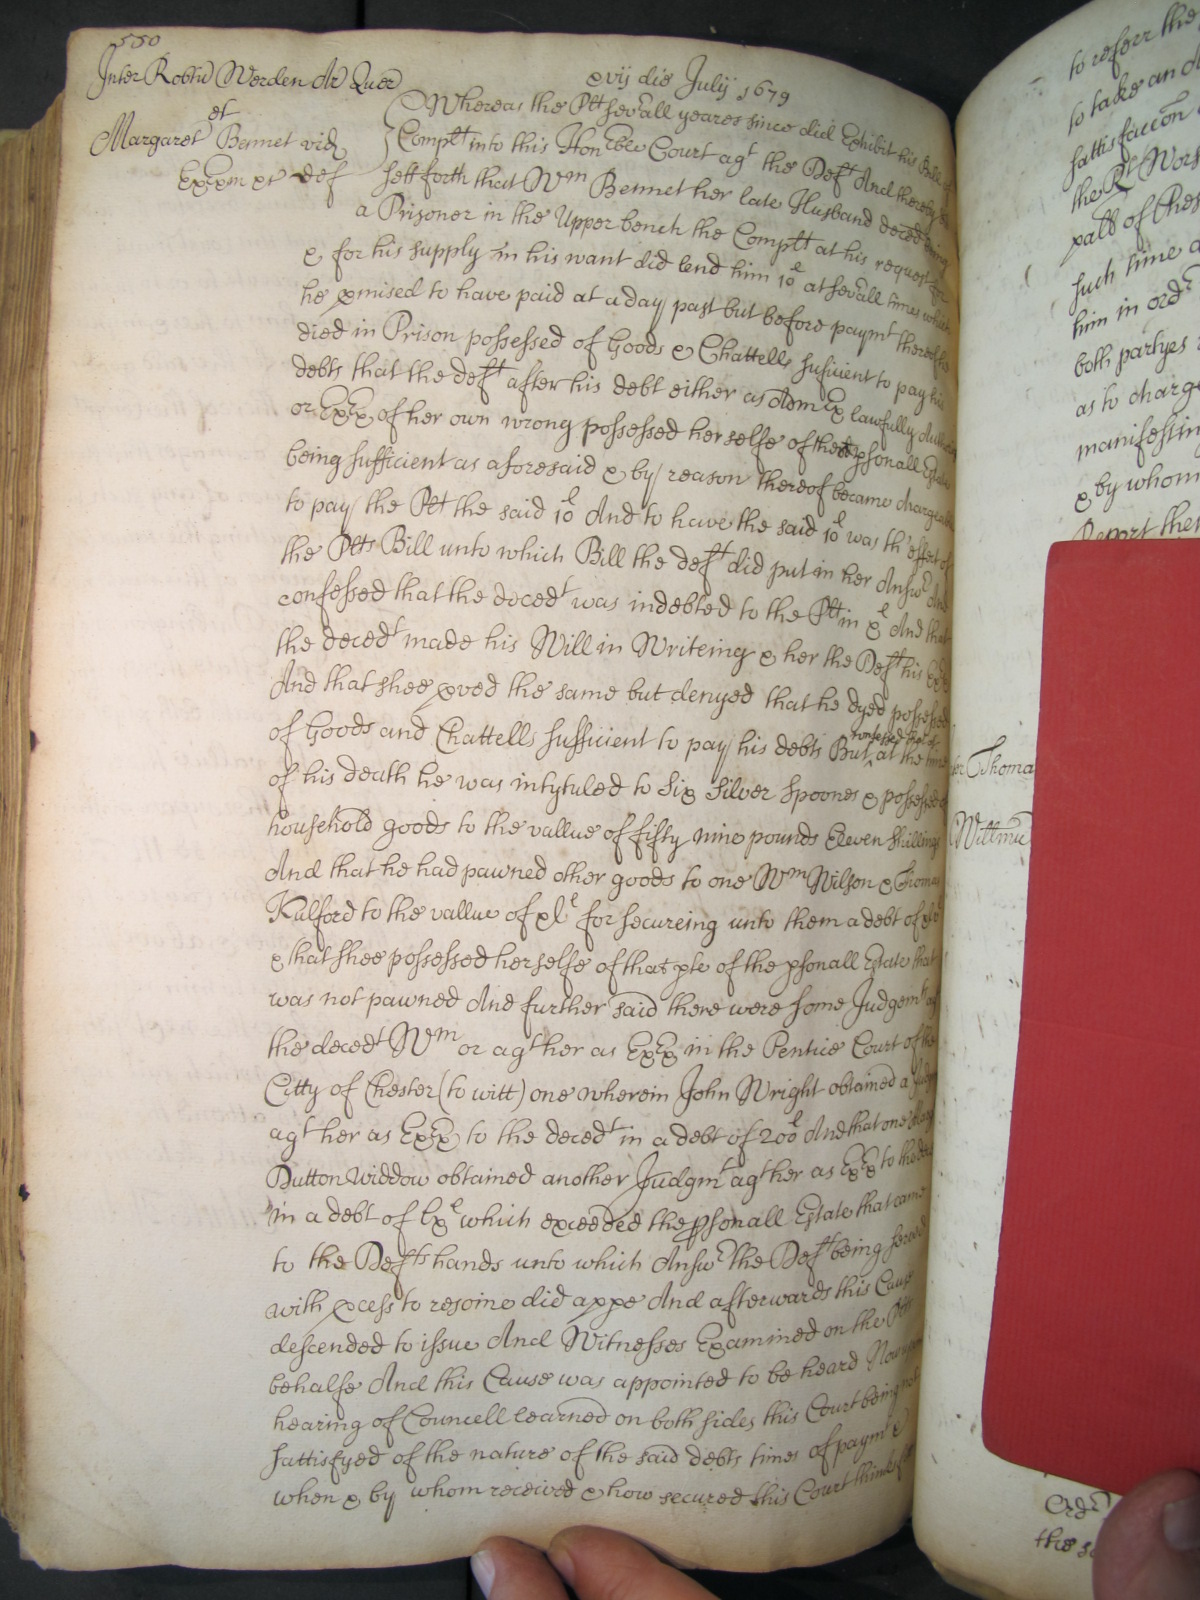 550
Inter Robtu Werden Ar Quer
et
Margaret Bennet vid
Exexm &c def
xvij die Julij 1679
Whereas the Plt severall yeares since did Exhibit his Bill of
Complt into this Honable Court agt the Deft And thereby
sett forth that Wm Bennet her late Husband deced being
a Prisoner in the Upper bench the Complt at his request for
& for his supply in his want did lend him 10l at severall times which
he pmised to have paid at a day past but before paymt thereof he
died in Prison possessed of Goods & Chattells suficient to pay his
debts that the deft after his debt either as AdmEx lawfully
or ExEx of her own wrong possessed herselfe of the psonall Estate
being sufficient as aforesaid & by reason thereof became chargeable
to pay the Plt the said 10l And to have the said 10l was th'effect of
the Plts Bill unto which Bill the deft did put in her Answr And
confessed that the decedt was indebted to the Plt in xl And that
the decedt made his Will in Writeing & her the Deft his ExEx
And that shee pved the same but denyed that he dyed possessed
of Goods and Chattells sufficient to pay his debts But confessed that at the time
of his death he was intytuled to Six Silver Spoones & possessed of
household goods to the vallue of fifty nine pounds Eleven Shillings
And that he had pawned other goods to one Wm Wilson & Thomas
Kulford to the vallue of xll for secureing unto them a debt of
& that shee possessed herselfe of that pte of the psonall Estate that
was not pawned And further said there were some Judgemts agt
the decedt Wm or agt her as ExEx in the Pentice Court of the
Citty of Chester (to witt) one wherein John Wright obtained a Judgmt
agt her as ExEx to the decedt in a debt of 200l And that one
Dutton widdow obtained another Judgmt agt her as ExEx to the decedt
in a debt of lxl which exceeded the psonall Estate that came
to the Defts hands unto which Answr the Deft being served
with pcess to rejoine did appe And afterwards this Cause
descended to issue And Witnesses Examined on the Plts
behalfe And this Cause was appointed to be heard Now upon
hearing of Councell learned on both sides this Court being not
sattisfyed of the nature of the said debts times of paymt &
when & by whom received & how secured this Court thinks fitt
to referr the
to take an
sattisfaccon
the Rt Wors
palt of Ches
such time
him in ordr
both partyes
as to charge
manifesting
& by whom
Report the
Thoma
Willmu
Ordr
the